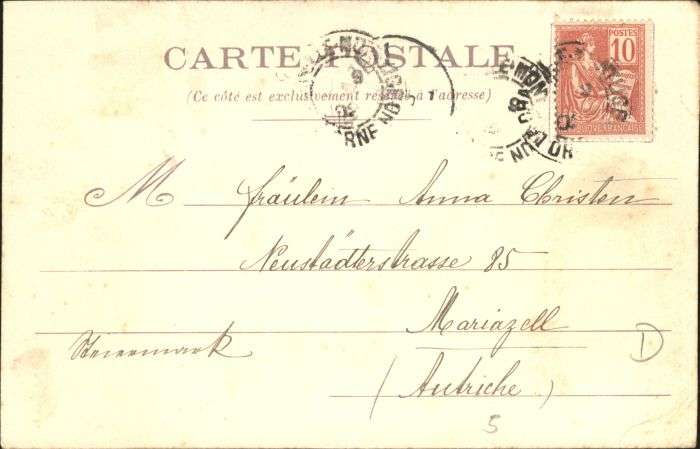 CARTE POSTALE
(Ce côté est exclusivement réservé à l'adresse)
POSTES
10
RÉPUBLIQUE FRANÇAISE
M Fräulein Anna Christen
Neustädterstrasse 85
Mariazell
Steiermark
(Autriche)
D
5